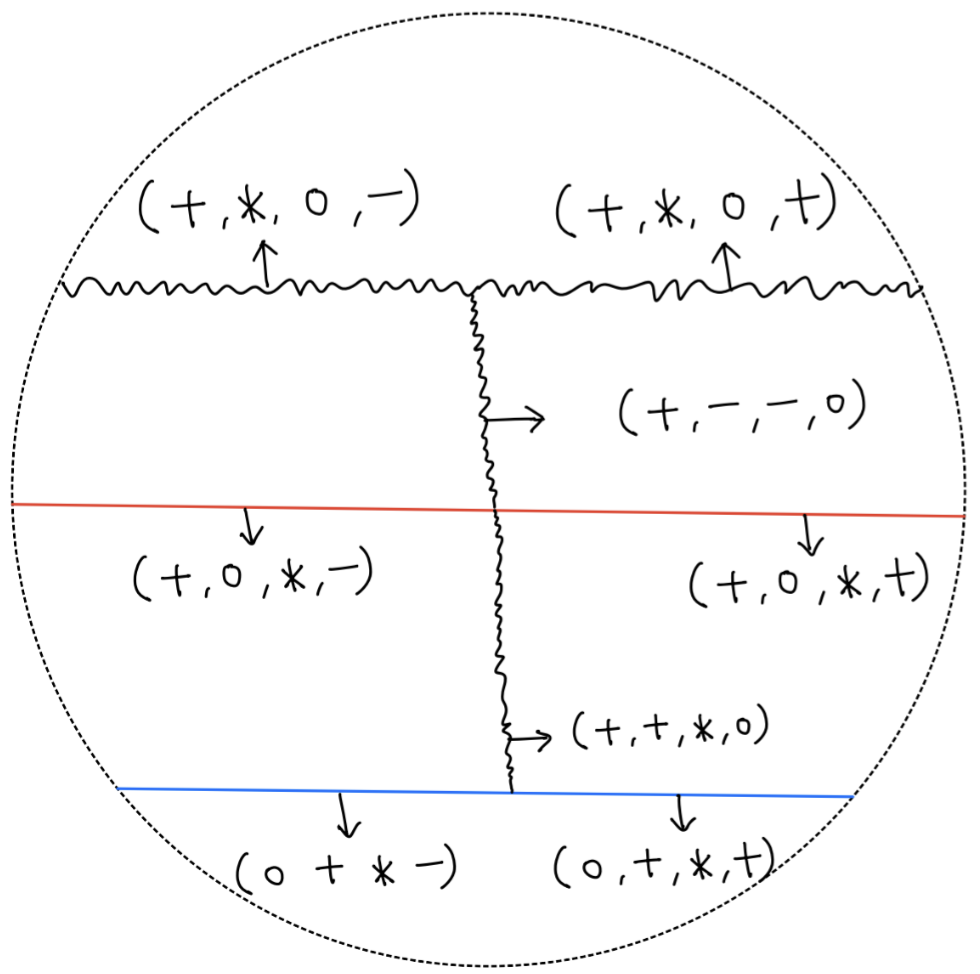 (+,*,0,-) (+,*,0,+)
(+,-,-,0)
(+,0,*,-) (+,0,*,+)
(+,+,*,0)
(0 + * -) (0,+,*,+)